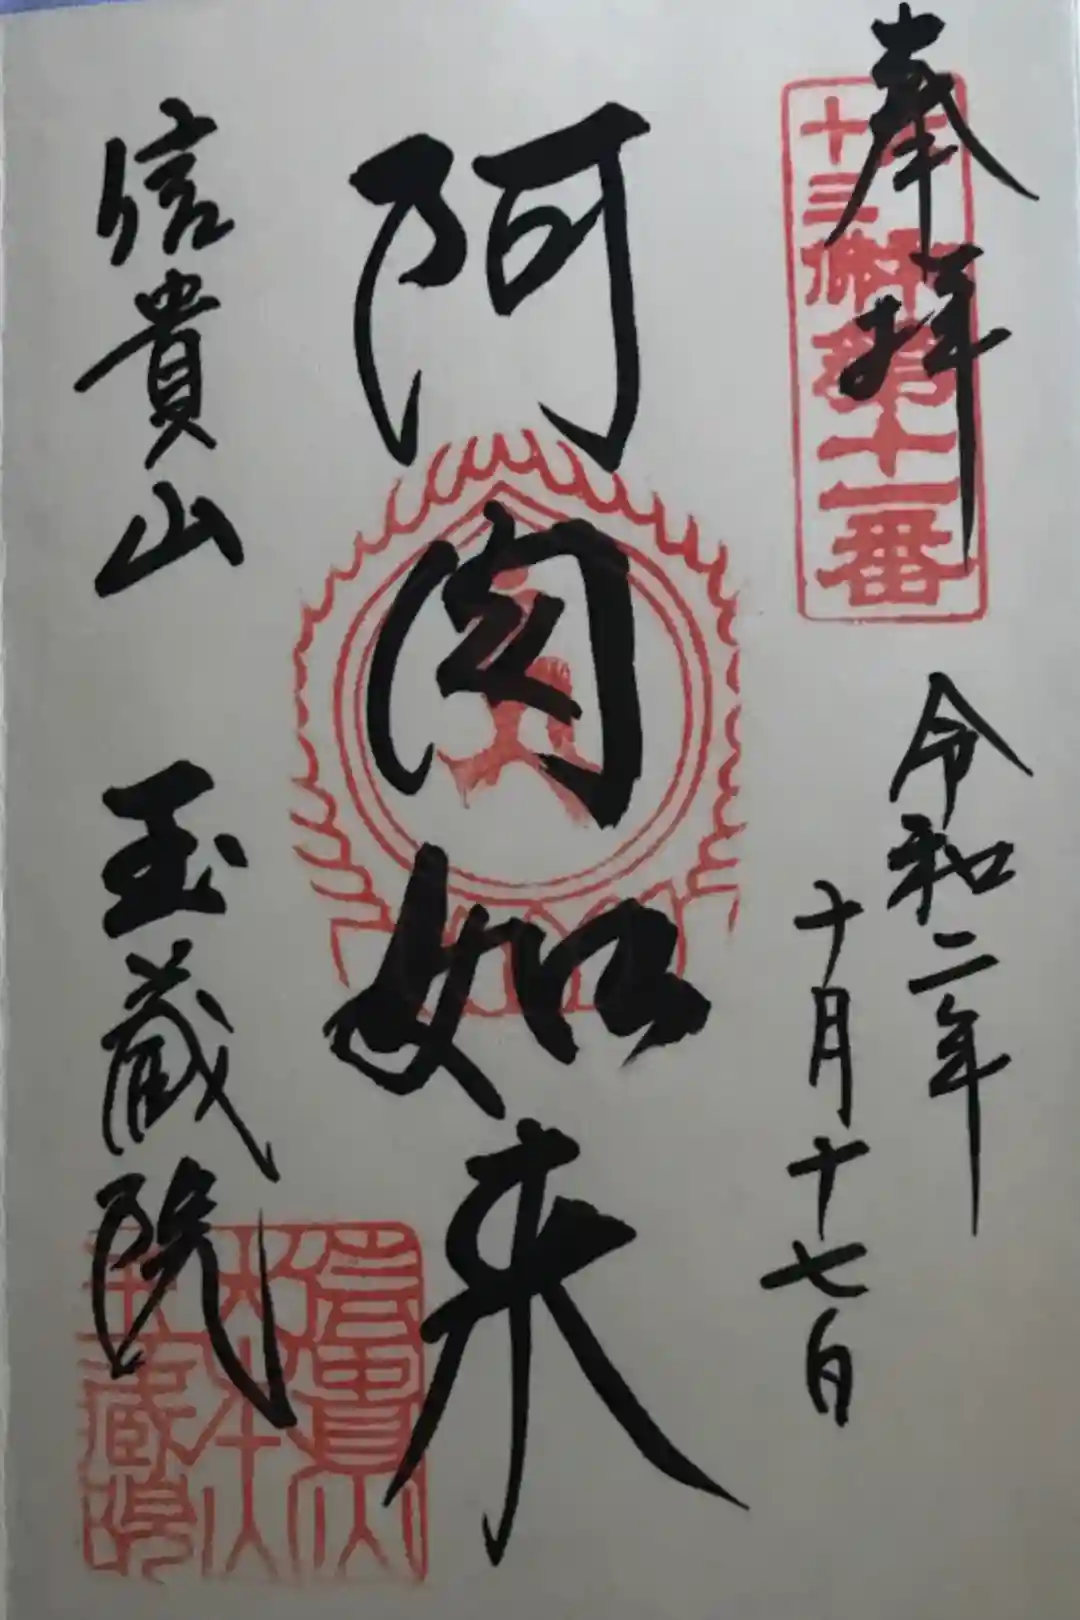 奉拝
十三佛
第十一番
令和二年
十月十七日
阿閦如来
信貴山 玉蔵院
信貴山
玉蔵院